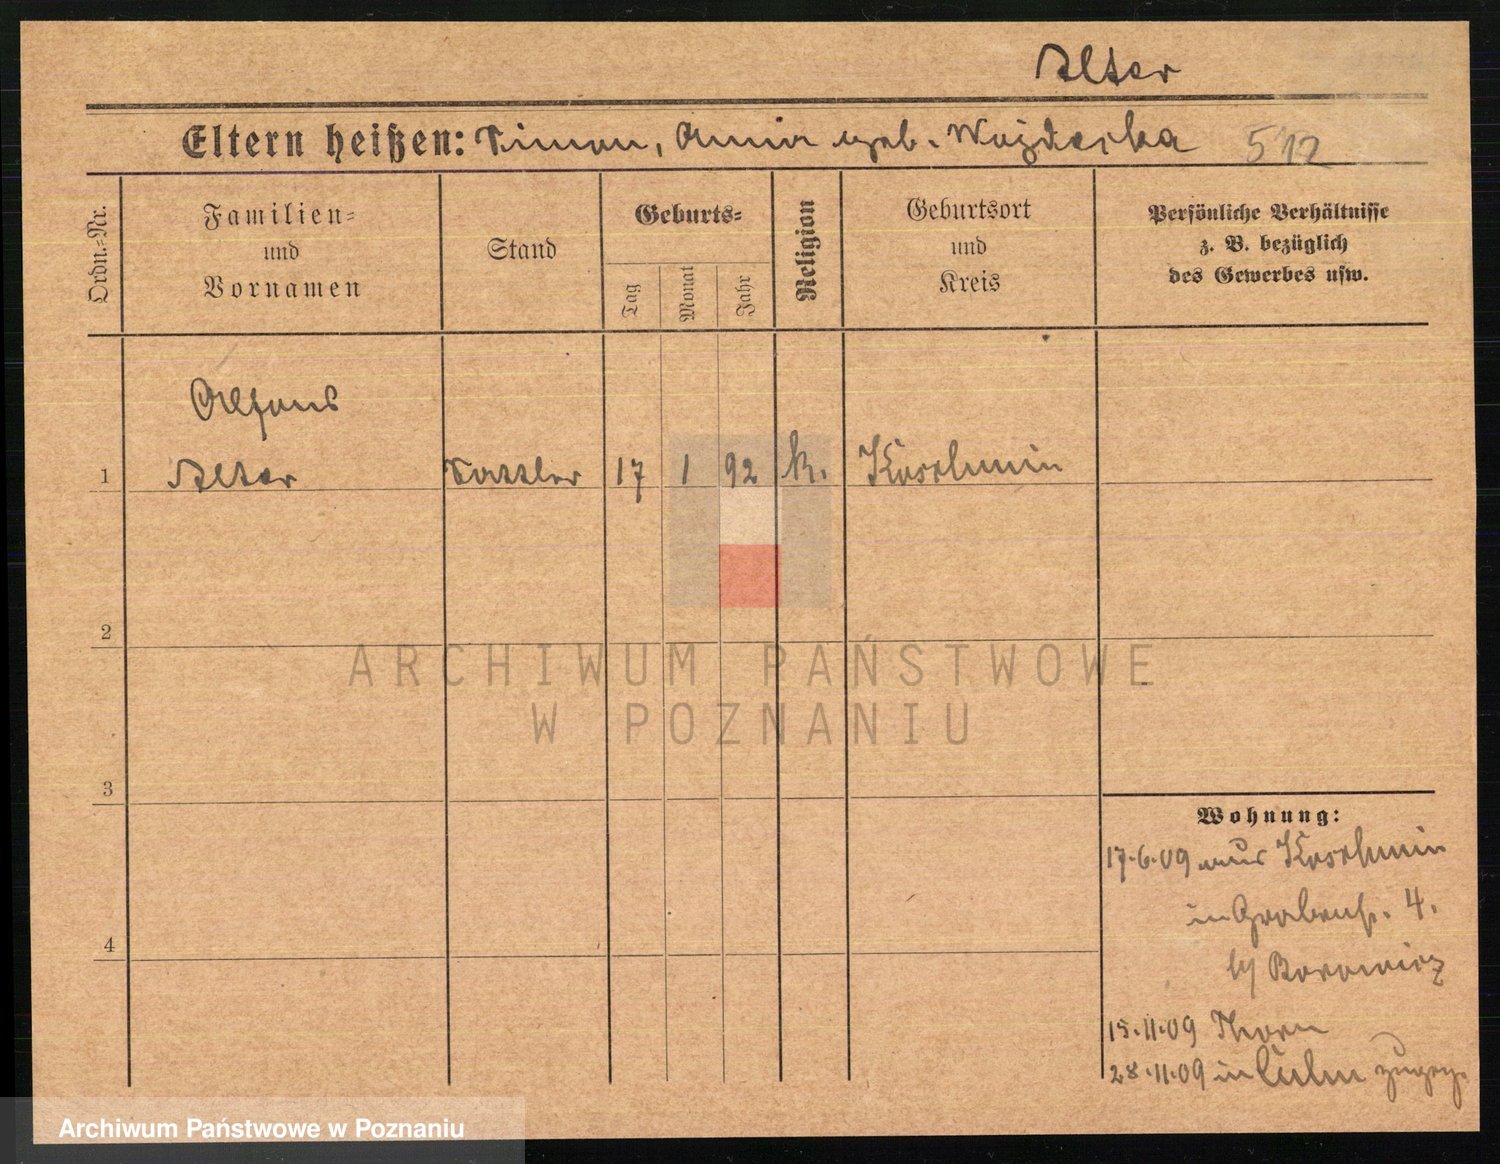 Alter
Eltern heißen: Simon, Anna geb. Wojdecka 512
Ordn.-Nr.
Familien-
und
Vornamen
Stand
Geburts-
Tag
Monat
Jahr
Religion
Geburtsort
und
Kreis
Persönliche Verhältnisse
z. B. bezüglich
des Gewerbes usw.
Alfons
1 Alter Sattler 17 1 92 k. Koschmin
2
ARCHIWUM PAŃSTWOWE
W POZNANIU
3
Wohnung:
17.6.09 aus Koschmin
in Grabenstr. 4.
b/ Borowicz
4
15.11.09 Thorn
28.11.09 in Culm zugez.
Archiwum Państwowe w Poznaniu